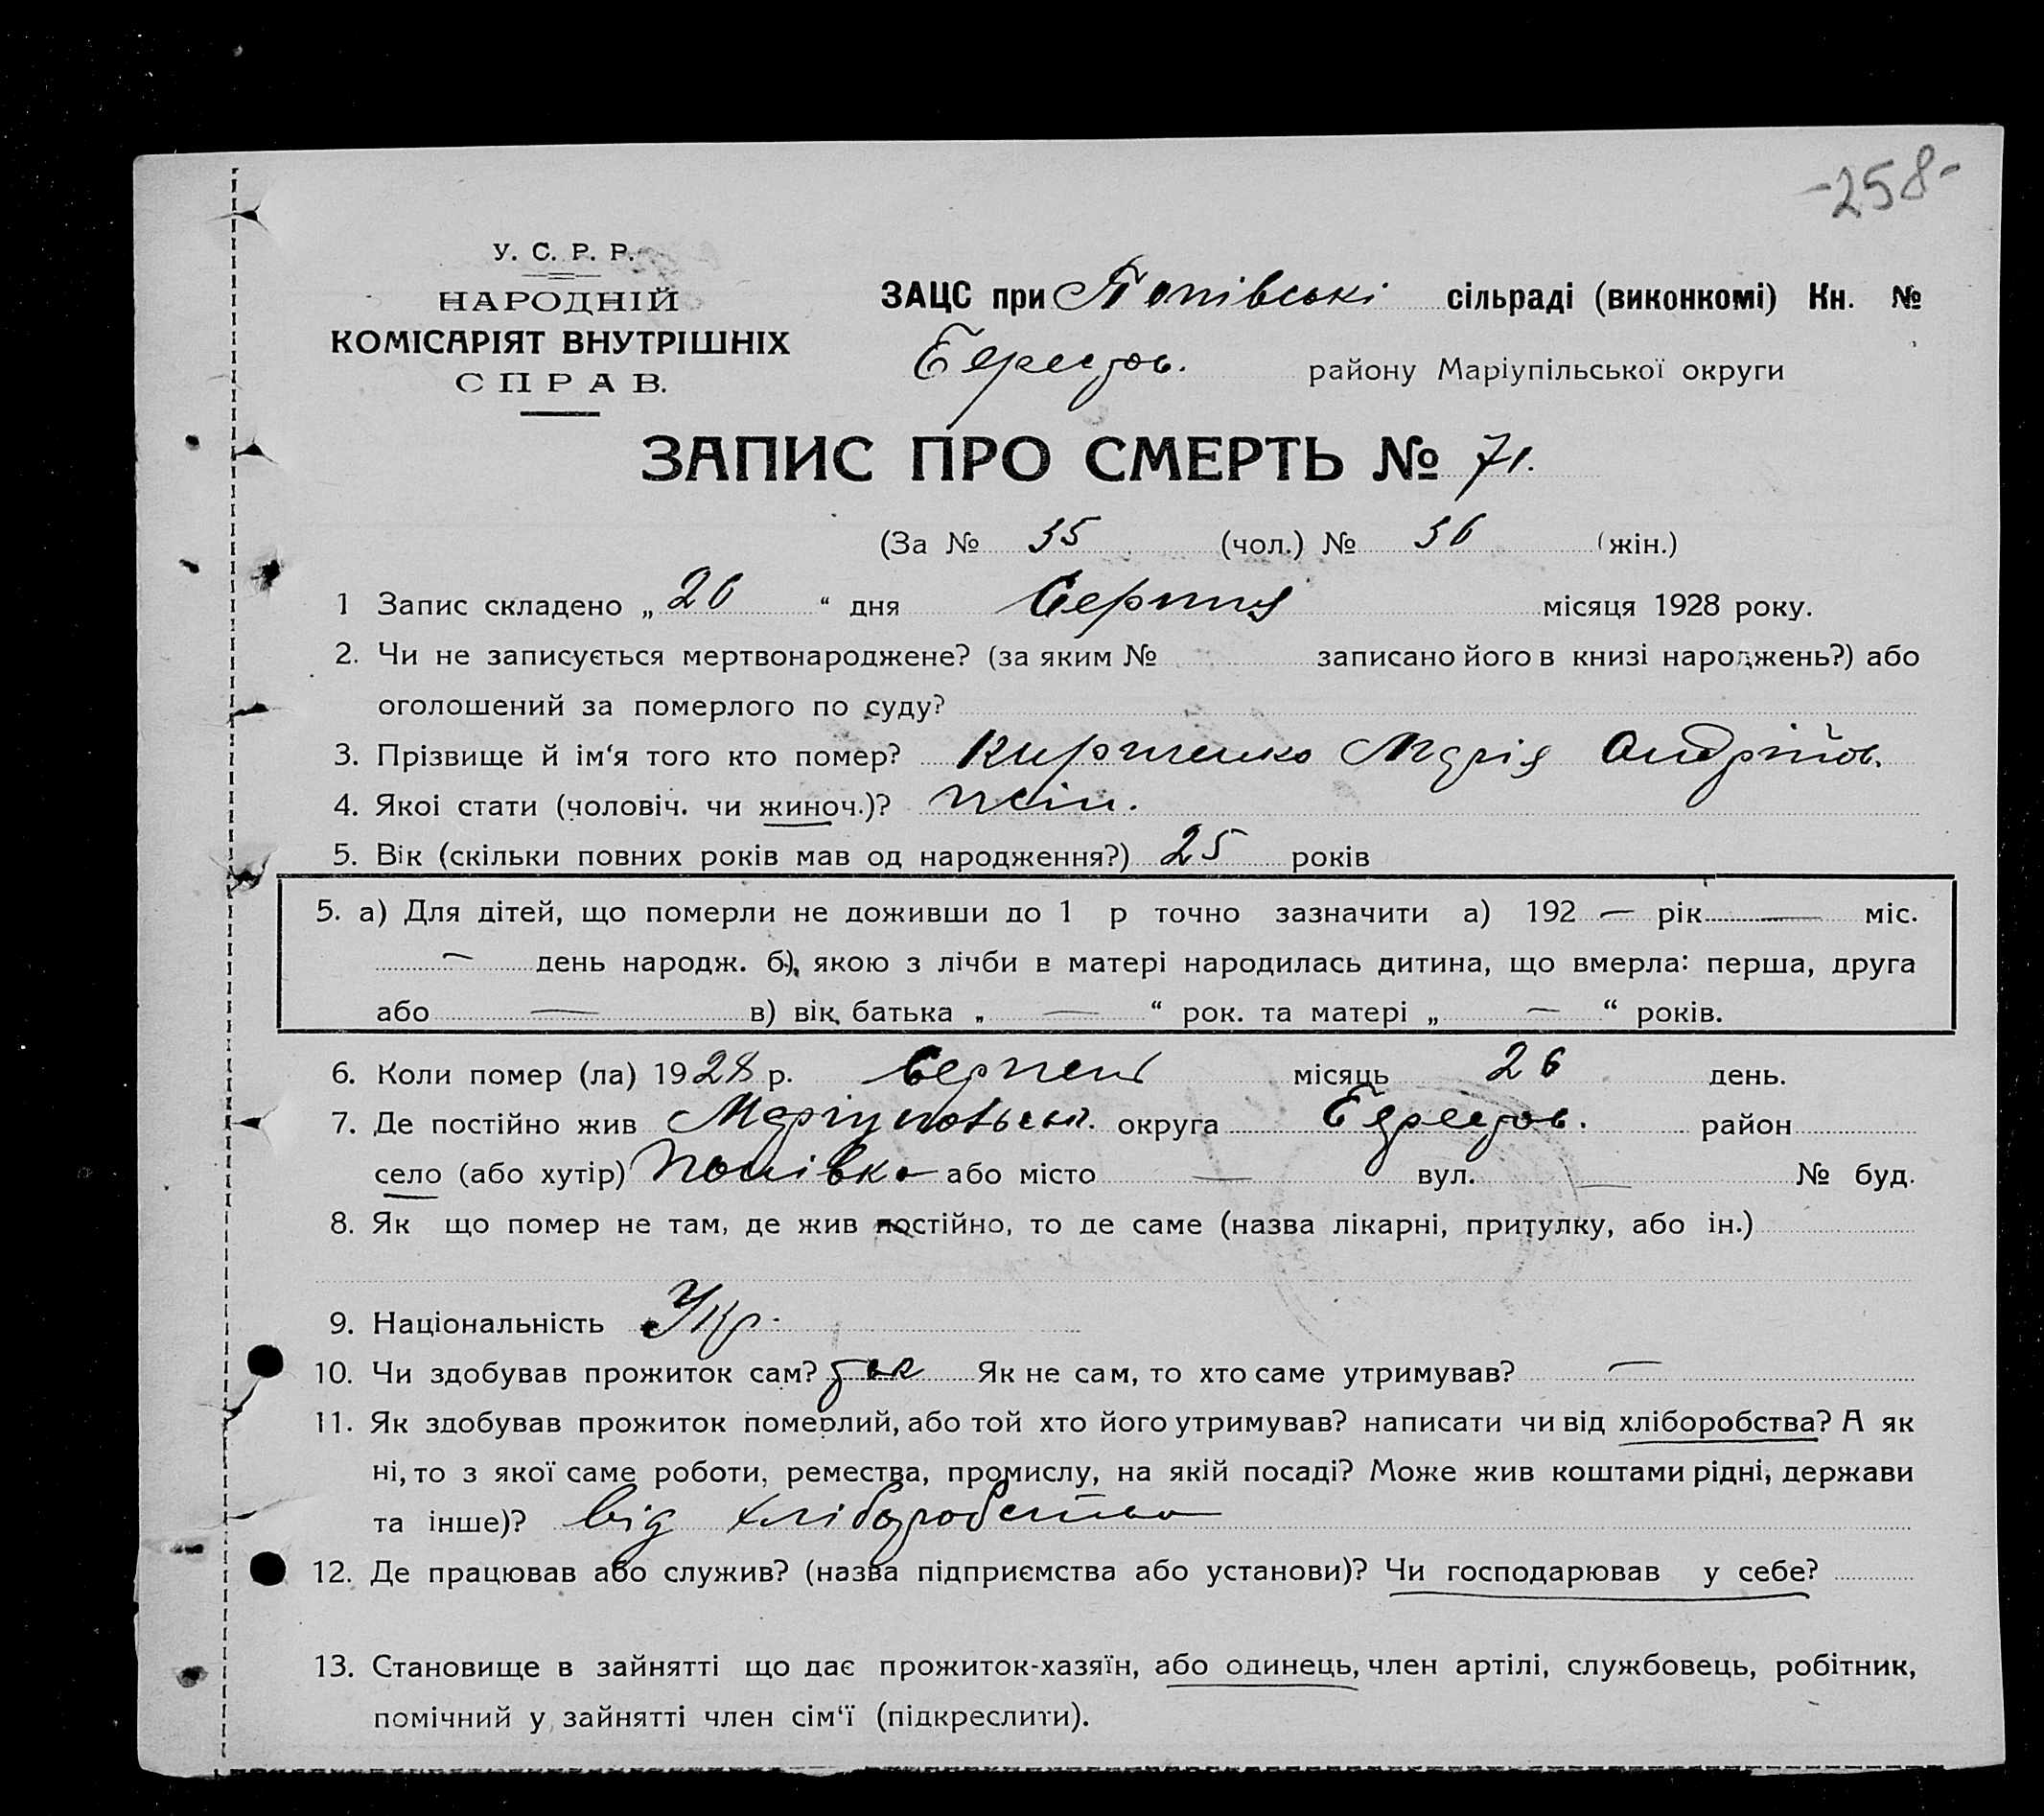 -258-
У. С. Р. Р.
НАРОДНІЙ
КОМІСАРІЯТ ВНУТРІШНІХ
СПРАВ.
ЗАЦС при Попівські сільраді (виконкомі) Кн. №
Берестов. району Маріупільської округи
ЗАПИС ПРО СМЕРТЬ № 71.
(За № 35 (чол.) № 36 (жін.)
1 Запис складено „ 26 “ дня Серпня місяця 1928 року.
2. Чи не записується мертвонароджене? (за яким № записано його в книзі народжень?) або
оголошений за померлого по суду?
3. Прізвище й ім‘я того кто помер? Кириченко Марія Андрійов.
4. Якоі стати (чоловіч. чи жиноч.)? жін.
5. Вік (скільки повних років мав од народження?) 25 років
5. а) Для дітей, що померли не доживши до 1 р точно зазначити а) 192 — рік — міс.
— день народж. б), якою з лічби в матері народилась дитина, що вмерла: перша, друга
або — в) вік батька „ — “ рок. та матері „ — “ років.
6. Коли помер (ла) 1928 р. Серпень місяць 26 день.
7. Де постійно жив Маріупольськ. округа Берестов. район
село (або хутір) Попівка або місто — вул. — № буд.
8. Як що помер не там, де жив постійно, то де саме (назва лікарні, притулку, або ін.)
9. Національність Укр.
10. Чи здобував прожиток сам? так Як не сам, то хто саме утримував? —
11. Як здобував прожиток померлий, або той хто його утримував? написати чи від хліборобства? А як
ні, то з якої саме роботи, ремества, промислу, на якій посаді? Може жив коштами рідні, держави
та інше)? від хліборобства
12. Де працював або служив? (назва підприємства або установи)? Чи господарював у себе?
13. Становище в зайнятті що дає прожиток-хазяїн, або одинець, член артілі, службовець, робітник,
помічний у зайнятті член сім‘ї (підкреслити).